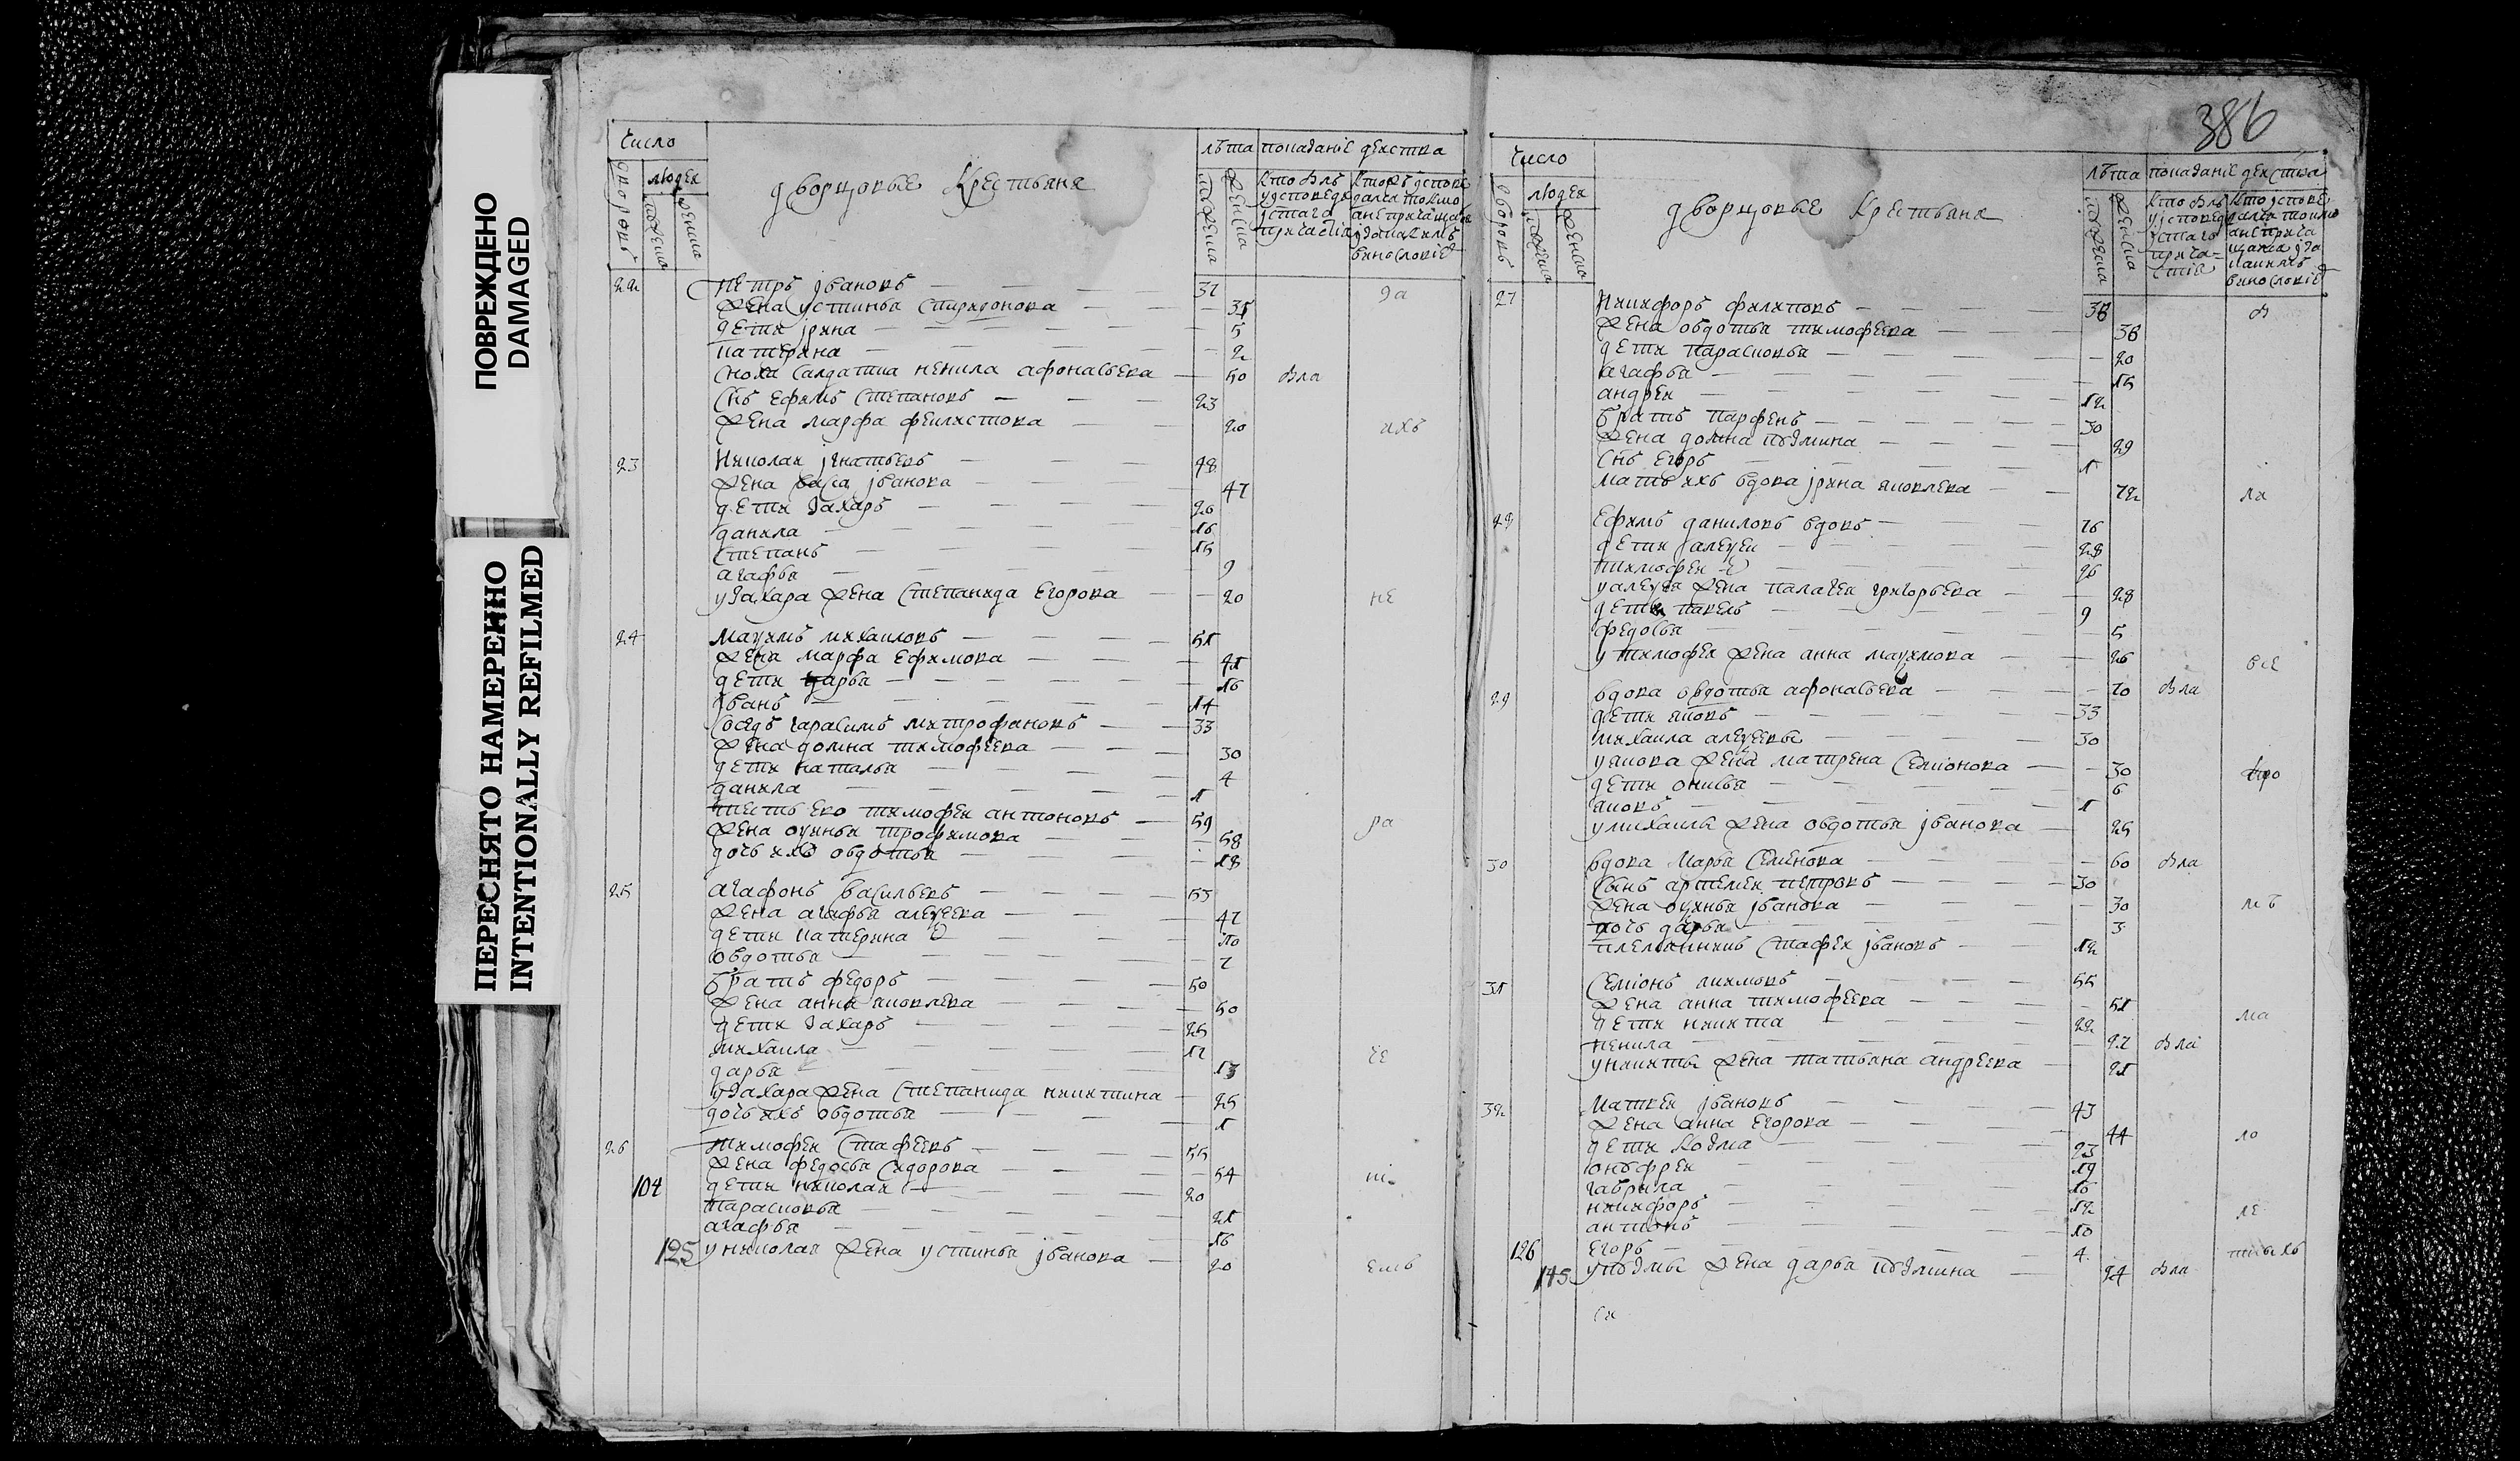 ПОВРЕЖДЕНО
DAMAGED
ПЕРЕСНЯТО НАМЕРЕННО
INTENTIONALLY REFILMED
число
дворовъ
людей
мужеска
женска
дворцовые крестьяня
лѣта
мужеска
женска
показание действа
22 петръ івановъ 37 да
жена устинья спиридонова 35
дети ірина 5
катерина 2
сноха салдатка ненила афонасьева 50 была
снъ ефимъ степановъ 23
жена марфа феклистова 20 ихъ
23 николай ігнатьевъ 48
жена васа іванова 47
дети захаръ 20
данила 16
степанъ 15
агафья 9
у захара жена степанида егорова 20 не
24 маѯимъ михаиловъ 51
жена марфа ефимова 41
дети дарья 16
іванъ 14
соседъ гарасимъ митрофановъ 33
жена домна тимофеева 30
дети наталья 4
данила 1
тесть ево тимофей антоновъ 59 ра
жена оѯинья трофимова 58
дочь ихъ овдотья 18
25 агафонъ васильевъ 53
жена агафья алеѯеева 47
дети катерина 10
овдотья 7
братъ федоръ 50
жена анна яковлева 50
дети захаръ 25
михаила 17 че
дарья 13
у захара жена степанида никитина 25
дочь ихъ овдотья 1
26 тимофей стафеевъ 55
жена федосья сидорова 54
104 дети николай 20
парасковья 21
агафья 16
125 у николая жена устинья іванова 20
386
число
дворовъ
людей
мужеска
женска
дворцовые крестьяня
лѣта
мужеска
женска
показание действа
27 никифоръ филиповъ 38
жена овдотья тимофеева 38
дети парасковья 20
агафья 15
андрей 12
братъ парфенъ 30
жена домна кузмина 29
снъ егоръ 1
мать ихъ вдова ірина яковлева 72 ли
28 ефимъ даниловъ вдовъ 76
дети алеѯей 28
тимофей 26
у алеѯея жена палагея григорьева 28
дети павелъ 9
федосья 5
у тимофея жена анна маѯимова 26 все
29 вдова овдотья афонасьева 70 была
дети яковъ 33
михаила алеѯеевы 30
у якова жена матрена семіонова 30
дети онисья 6
яковъ 1
у михаилы жена овдотья іванова 25
30 вдова марья семенова 60 была
сынъ артемей петровъ 30
жена оѯинья іванова 30
дочь дарья 3
племянникъ стафей івановъ 12
31 семіонъ акимовъ 55
жена анна тимофеева 51
дети никита 22 ма
ненила 27 была
у никиты жена татьяна андреева 21
32 матвей івановъ 43
жена анна егорова 44 ло
дети козма 23
онуфрей 19
гаврила 16
никифоръ 12 ле
антонъ 10
126 егоръ 4
145 у козмы жена дарья кузмина 24 была
ся